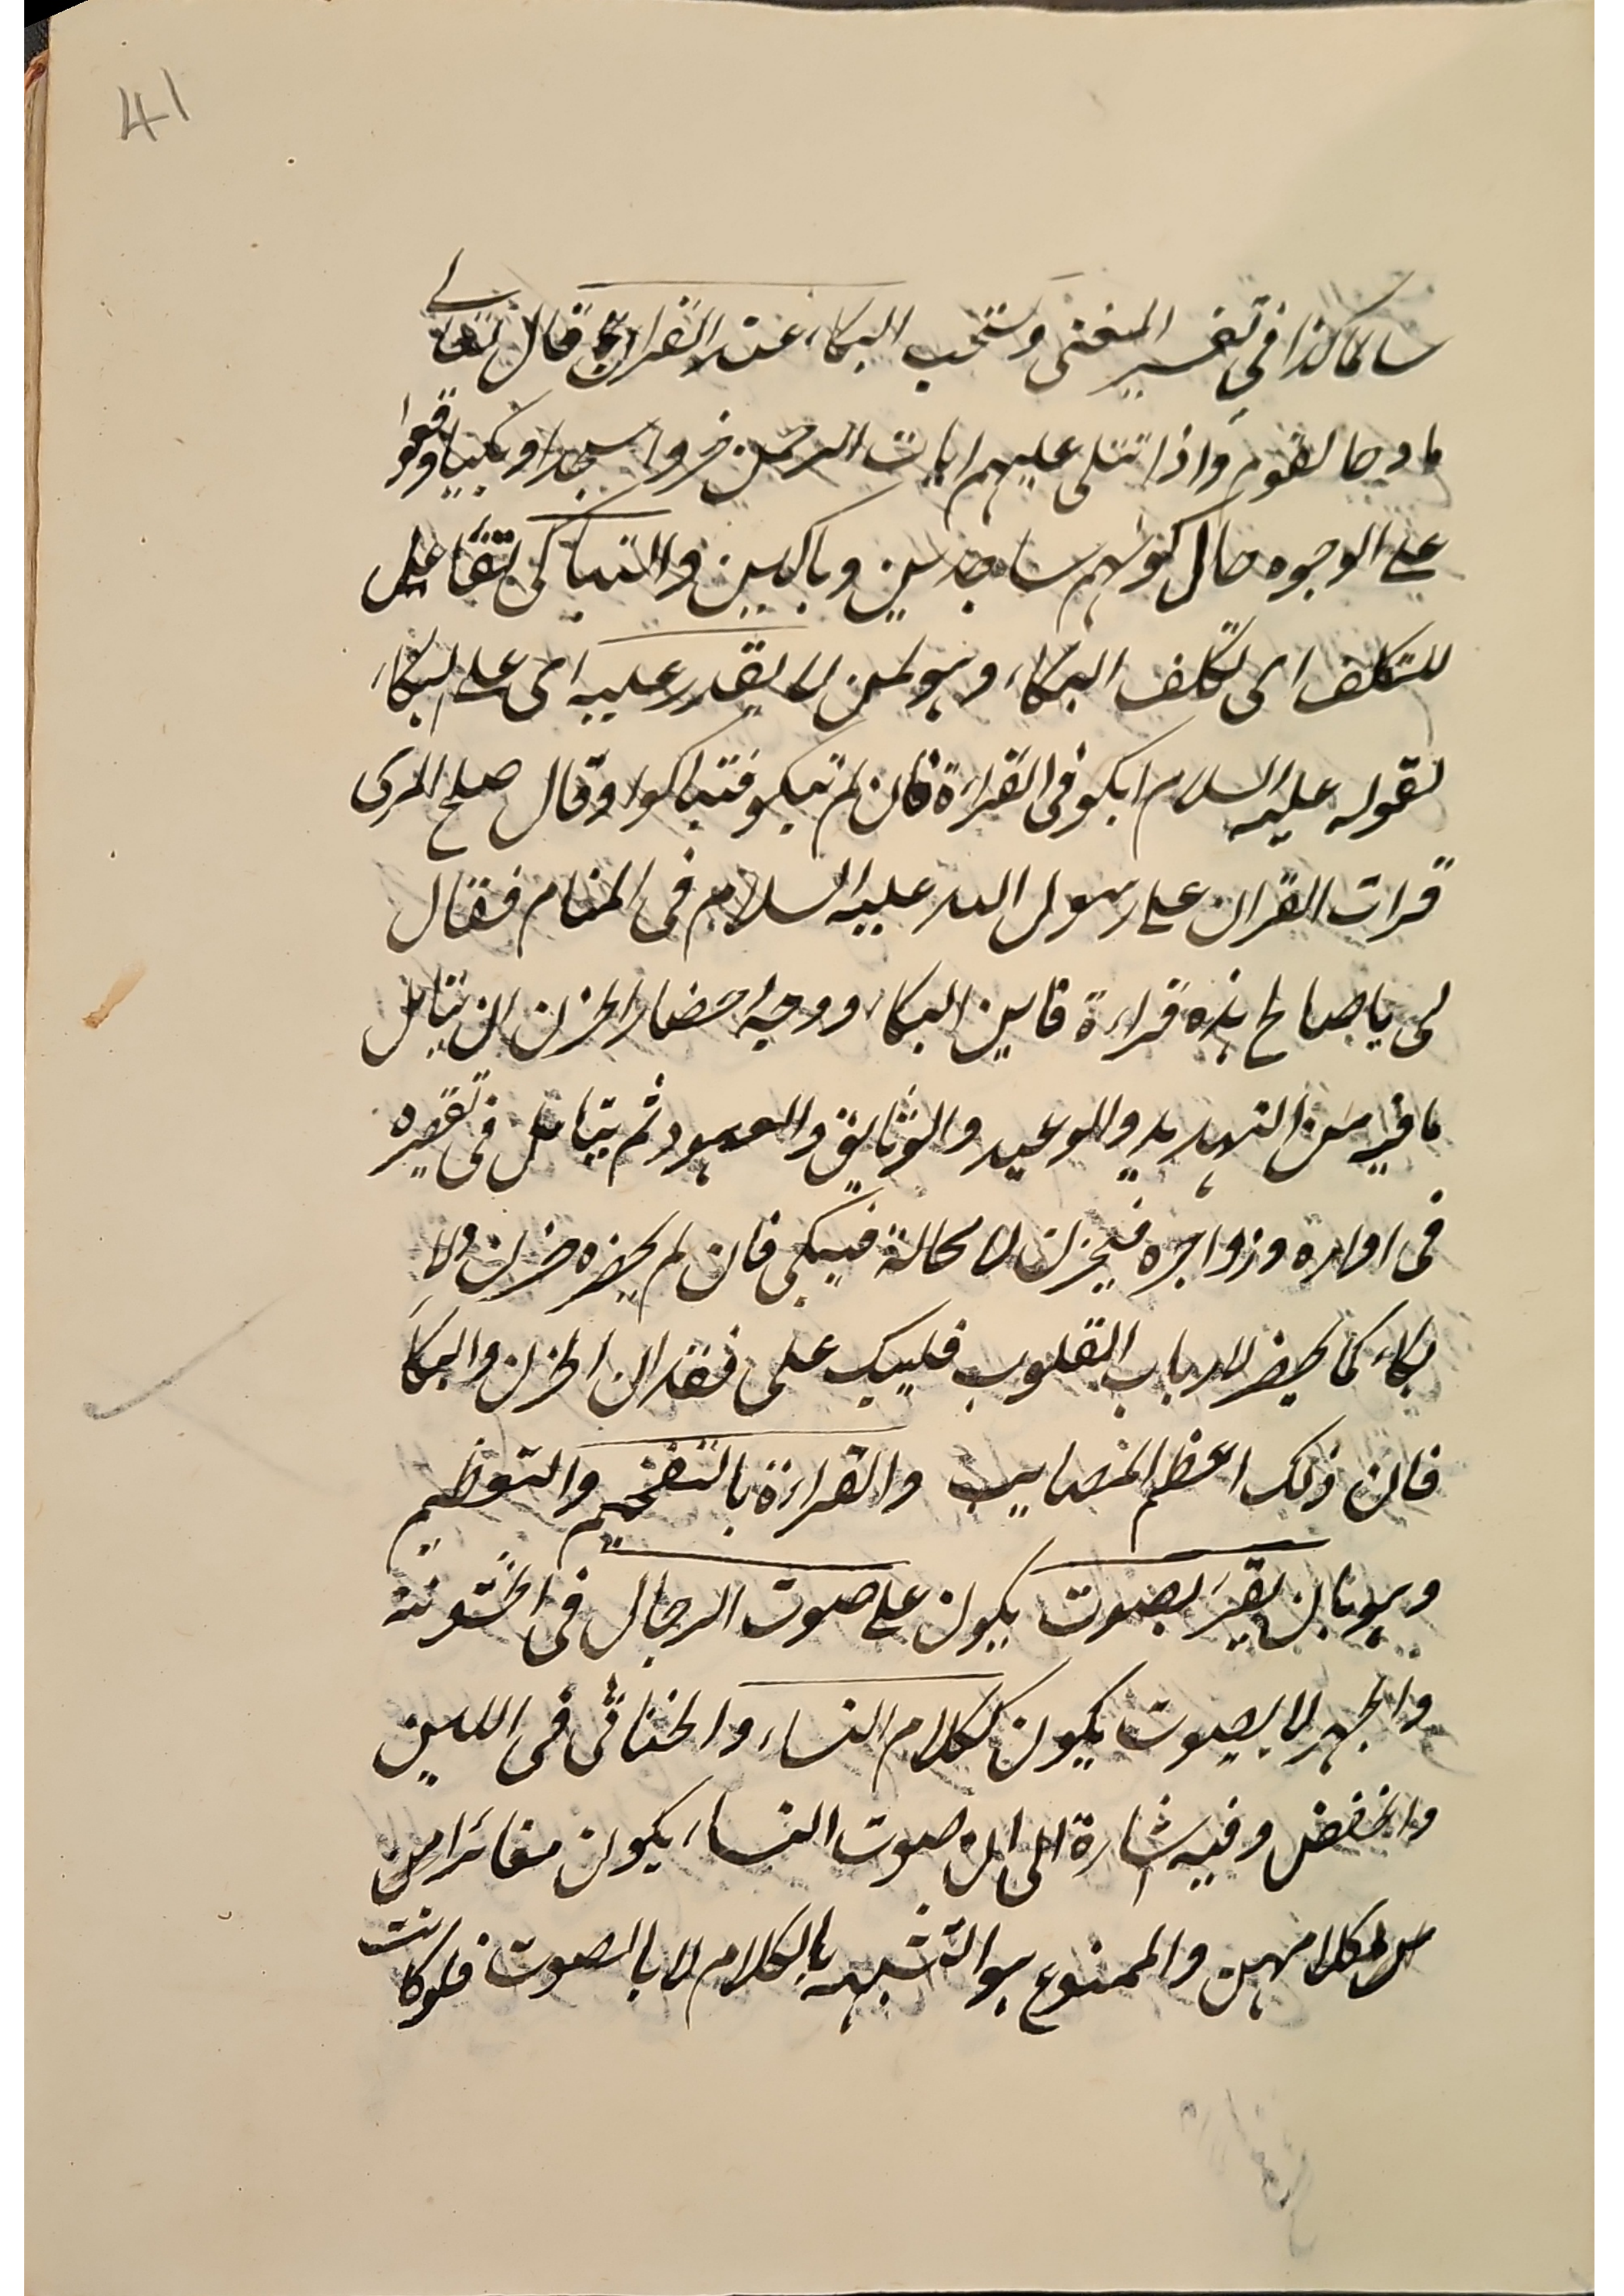 41
سالما كذا فى تفسير المغنى ويستحب البكاء عند القراءة قال تعالى
مادحا لقوم واذا تتلى عليهم ايات الرحمن خروا سجدا وبكيا وقعوا
على الوجوه حال كونهم ساجدين وباكيين والتباكى تفاعل
للتكلف اى تكلف البكاء وهو لمن لا يقدر عليه اى على البكاء
لقوله عليه السلام ابكو فى القراءة فان لم تبكو فتباكوا وقال صلح المرى
قرات القران على رسول الله عليه السلام فى المنام فقال
لى يا صالح هذه قراءة فاين البكاء ووجه احضار الحزن ان يتامل
ما فيه من التهديد والوعيد والوثايق والعهود ثم يتامل فى تقصيره
فى اوامره وزواجره فيحزن لا محالة فيبكى فان لم يحضره حزن ولا
بكاء كما يحضر لارباب القلوب فليبك على فقدان الحزن والبكاء
فان ذلك اعظم المصايب والقراءة بالتفخيم والتعظيم
وهو بان يقرء بصوت يكون على صوت الرجال فى الخشونة
والجهر لا بصوت يكون ككلام النساء والخناثى فى اللين
والخفض وفيه اشارة الى ان صوت النساء يكون مغائرا من
كلامهن والممنوع هو التشبه بالكلام لا بالصوت فلو كانت